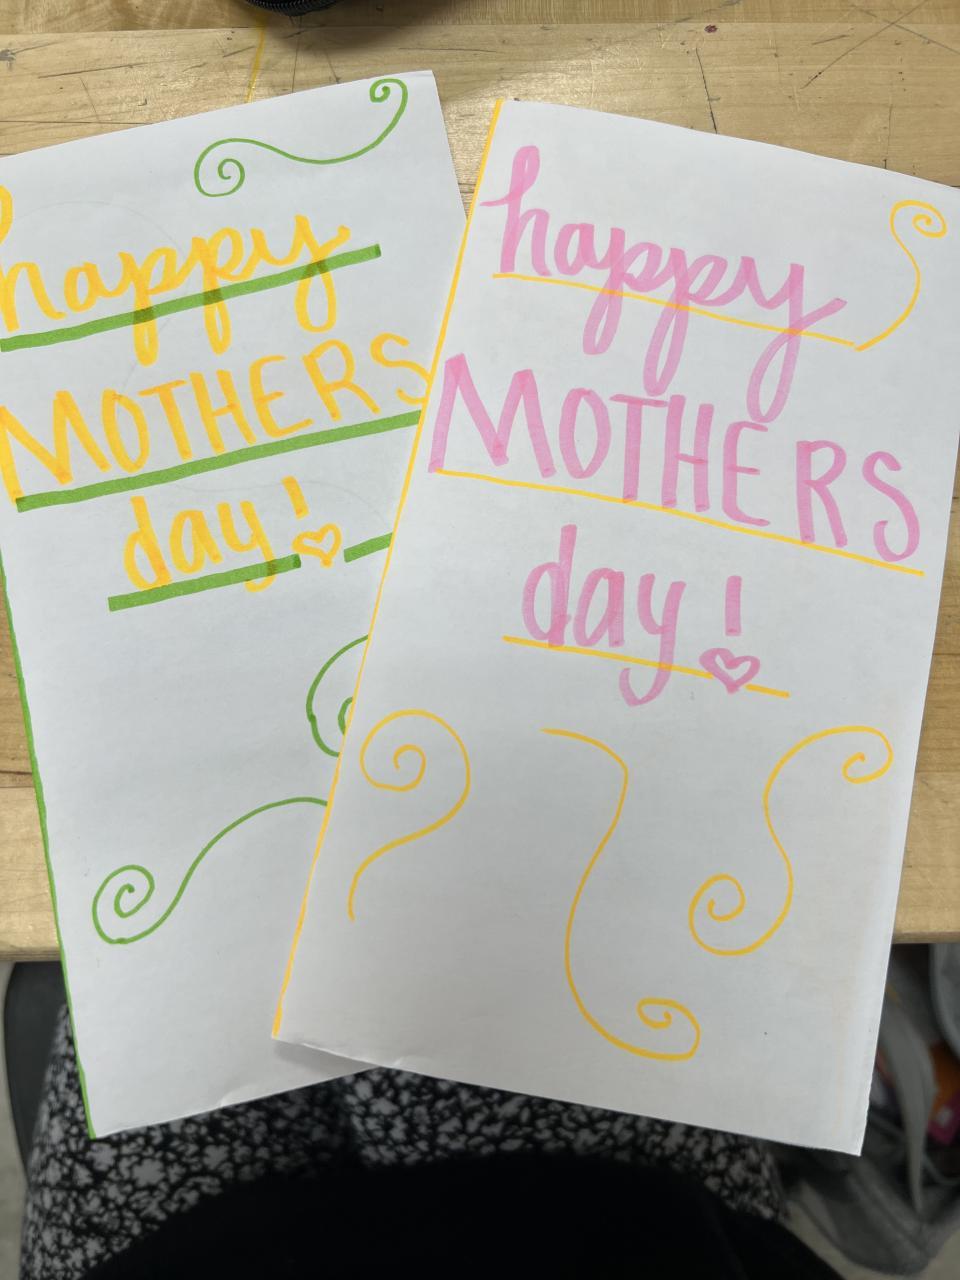 happy
MOTHERS
day!
happy
MOTHERS
day!